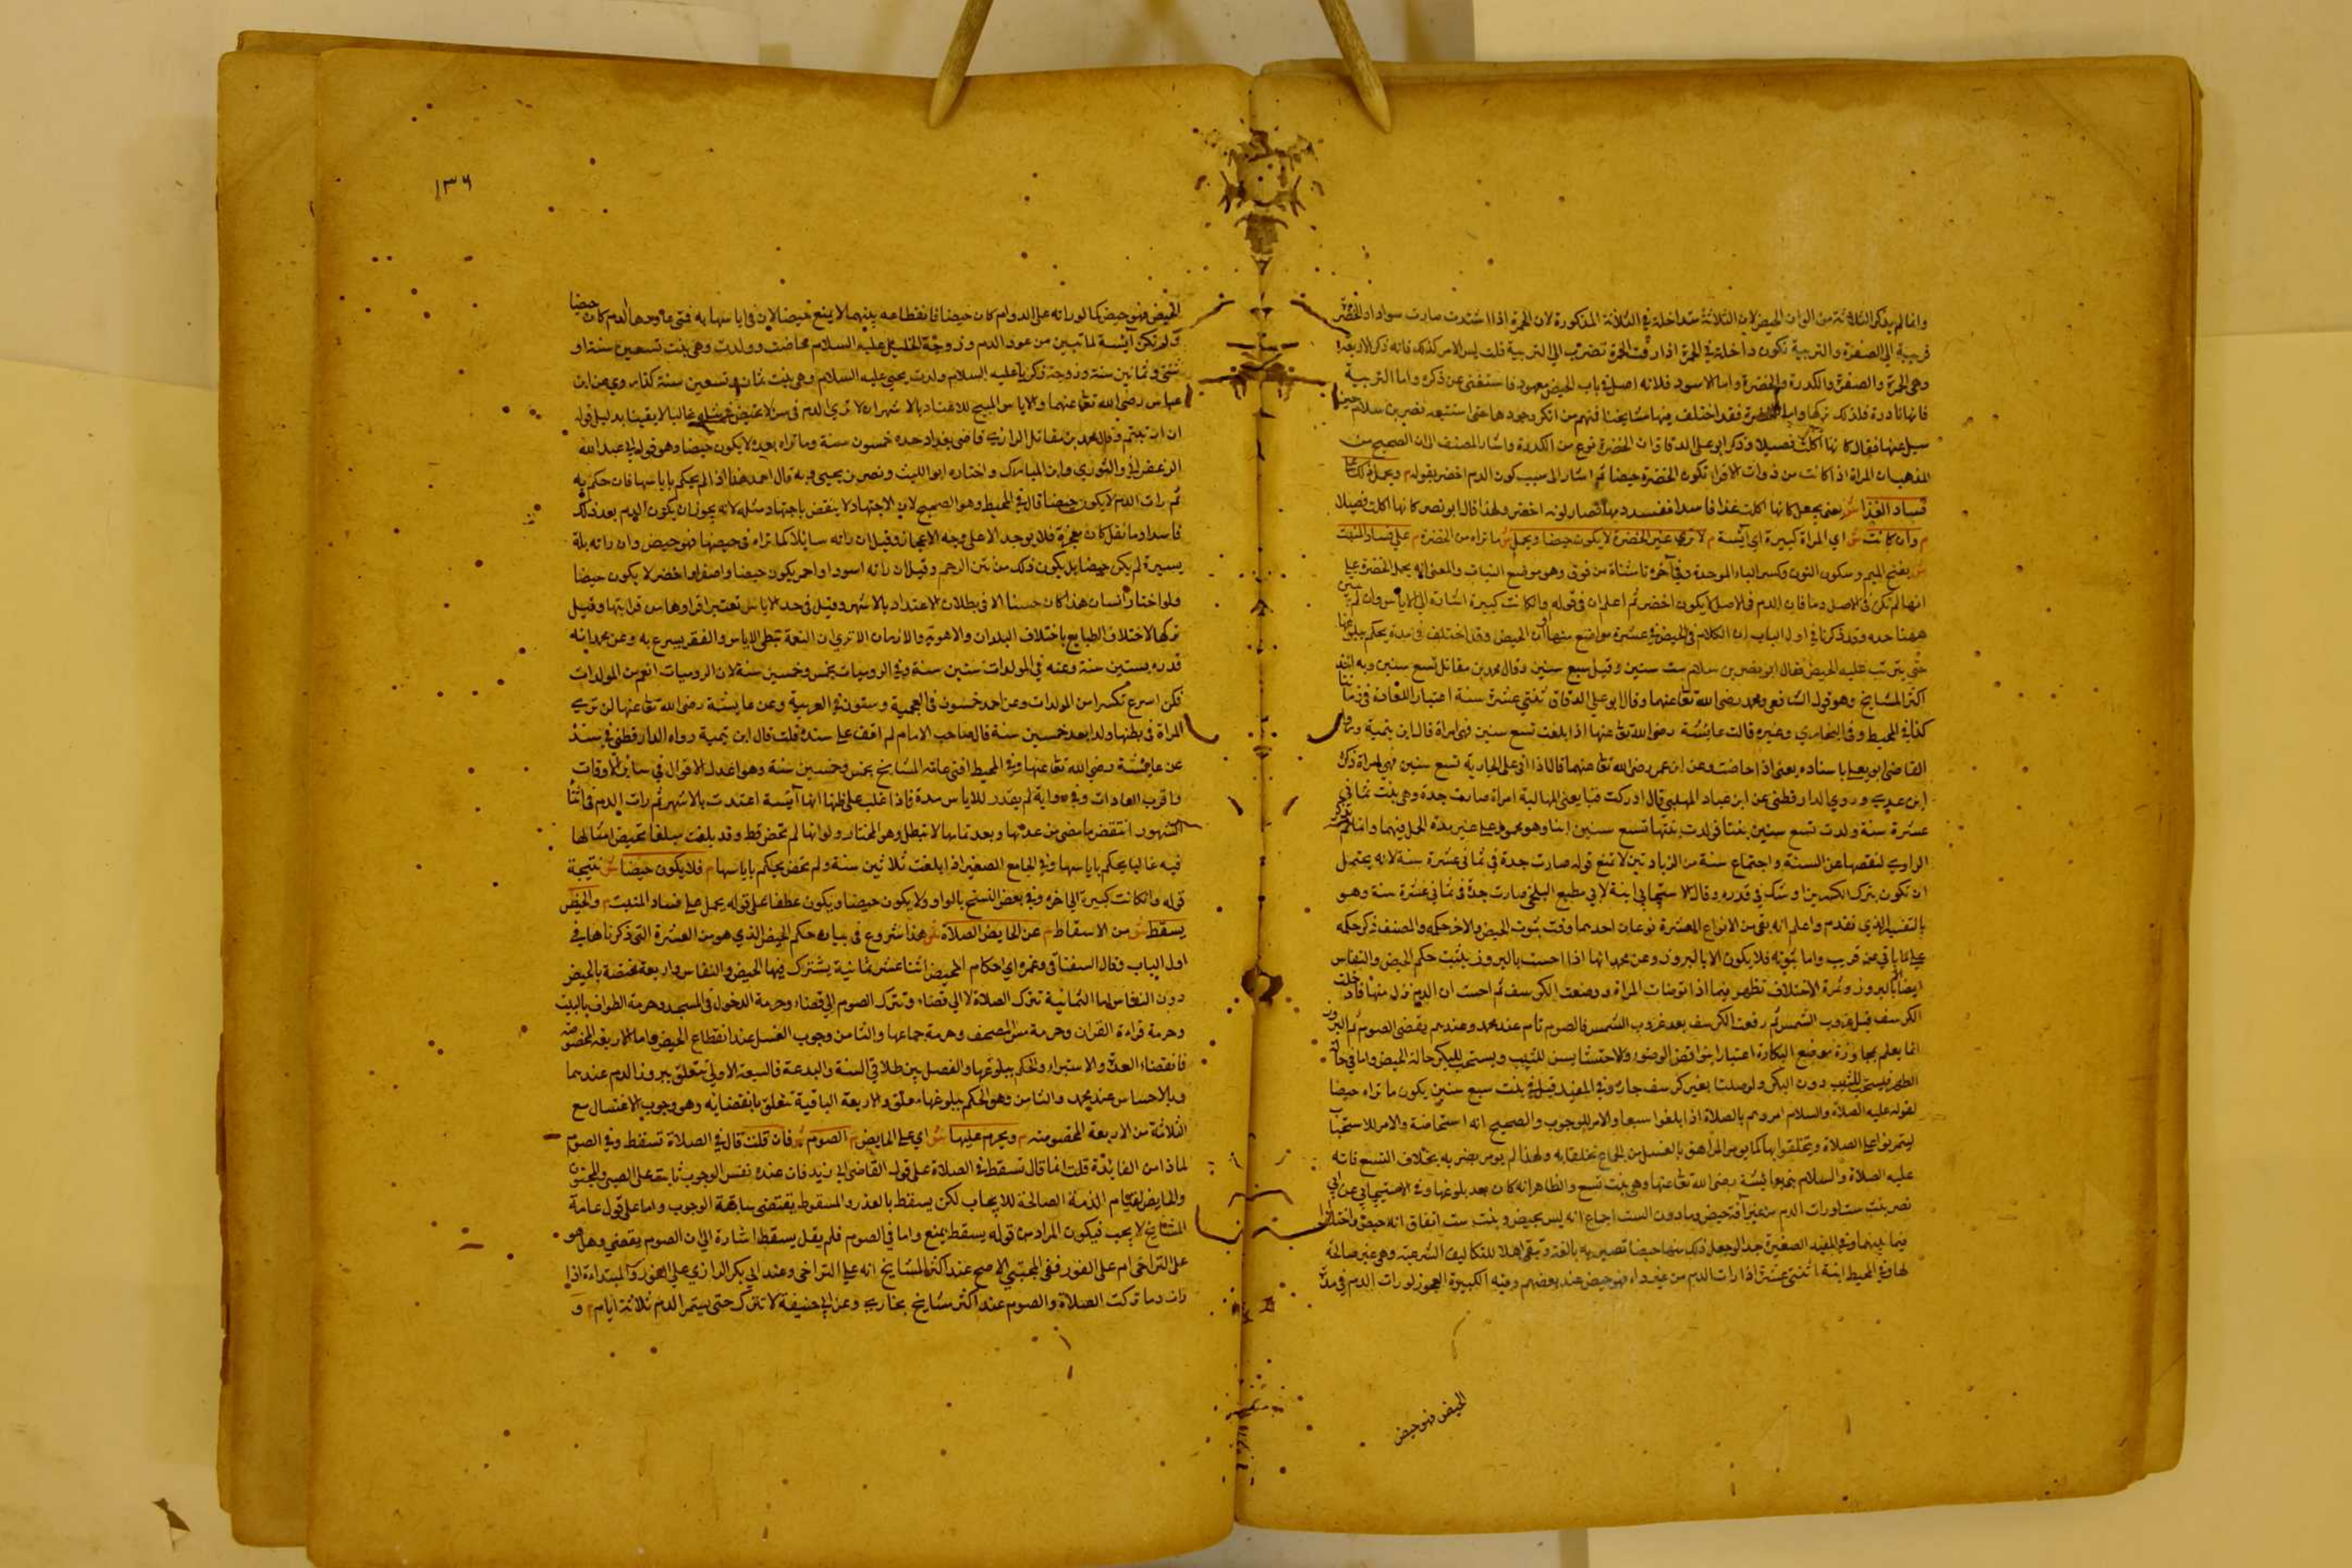 وانما لم يذكر الثلاثة من الوان الحيض لان الثلاثة متداخلة في الثلاثة المذكورة لان الحمرة اذا اشتدت صارت سوادا والخضرة
قريبة الى الصفرة والتربية تكون داخلة في الحمرة اذا رقت الحمرة تضرب الى التربية قلت ليس الامر كذلك فانه ذكر الاربعة
وهي الحمرة والصفرة والكدرة والخضرة واما الاسود فلانه اصل في باب الحيض معهود فاستغنى عن ذكره واما التربية
فانها نادرة فلذلك تركها واما الخضرة فقد اختلف فيها مشايخنا فمنهم من انكر وجودها حتى استبعد نصر بن سلام حين
سيل عنها فقال كانها اكلت فصيلا وذكر ابو على الدقاق ان الخضرة نوع من الكدرة واشار المصنف الى ان الصحيح من
المذهب ان المراة اذا كانت من ذوات الاقرا تكون الخضرة حيضا ثم اشار الى سبب كون الدم اخضر بقوله م ويحمل ذلك على
فساد الغذا ش يعنى يجعل كانها اكلت غذا فاسدا ففسد دمها فصار لونه اخضر ولهذا قال ابو نصر كانها اكلت فصيلا
م وان كانت ش اي المراة كبيرة اي آئسة م لا ترى غير الخضرة لا يكون حيضا ويحمل ش ما تراه من الخضرة م على فساد المنبت
ش بفتح الميم وسكون النون وكسر الباء الموحدة وفي آخره تا مثناة من فوق وهو موضع النبات والمعنى انه يحمل الخضرة على
انها لم تكن في الاصل دما فان الدم في الاصل لا يكون اخضر ثم اعلم ان في قوله وان كانت كبيرة اشارة الى الاياس وان لم يبين
ههنا حده وقد ذكرنا في اول الباب ان الكلام في الحيض في عشرة مواضع منها اوان الحيض وقد اختلف في مدة يحكم ببلوغها
حتى يترتب عليه الحيض فقال ابو نصر بن سلام ست سنين وقيل سبع سنين وقال محمد بن مقاتل تسع سنين وبه اخذ
اكثر المشايخ وهو قول الشافعي ومحمد رضى الله تعا عنهما وقال ابو على الدقاق ثنتي عشرة سنة اعتبارا للعادة في زماننا
كذا في المحيط وفي البخاري وغيره قالت عايشة رضى الله تعا عنها اذا بلغت تسع سنين فهي امراة قال ابن تيمية رواه
القاضى ابو يعلى باسناده يعنى اذا حاضت وعن ابن عمر رضى الله تعا عنهما قال اذا اتى على الجارية تسع سنين فهي امراة ذكره
ابن عدي وروي الدارقطني عن ابن عباد المهلبي قال ادركت فينا يعنى المهالبة امراة صارت جدة وهي بنت ثماني
عشرة سنة ولدت تسع سنين بنتا فولدت بنتها تسع سنين ابنا وهو محمول على غير مدة الحمل فيهما وانما لم يذكره
الراوي لنقصها عن السنة واجتماع سنة من الزيادتين لا تمنع قوله صارت جدة في ثماني عشرة سنة لانه يحتمل
ان تكون بترك الكسرين او شك في قدره وقال الاسبيجابي ابنة لابي مطيع البلخي صارت جدة في ثماني عشرة سنة وهو
بالتفسير الذي تقدم واعلم انه بقي من الانواع العشرة نوعان احدهما وقت ثبوت الحيض والاخر حكمه والمصنف ذكر حكمه
على ما ياتي عن قريب واما ثبوته فلا يكون الا بالبروز وعن محمد انها اذا احست بالبروز يثبت حكم الحيض والنفاس
ايضا بالبروز وثمرة الاختلاف تظهر فيما اذا توضات المراة ووضعت الكرسف ثم احست ان الدم نزل منها فادخلت
الكرسف قبل غروب الشمس ثم رفعت الكرسف بعد غروب الشمس فالصوم تام عند محمد وعندهم يقضى الصوم ثم البروز
انما يعلم بمجاوزة موضع البكارة اعتبارا بنواقض الوضوء والاحتشا يسن للثيب ويستحب للبكر حالة الحيض واما في حالة
الطهر فيستحب للثيب دون البكر ولو صلتا بغير كرسف جاز وفي المفيد قيل في بنت سبع سنين يكون ما تراه حيضا
لقوله عليه الصلاة والسلام امروهم بالصلاة اذا بلغوا سبعا والامر للوجوب والصحيح انه استحاضة والامر للاستحباب
ليتمرنوا على الصلاة ويتخلقوا بها كما يومر المراهق بالغسل من الجماع تخلقا به ولهذا لم يومر بضربه بخلاف التسع فانه
عليه الصلاة والسلام بنى بعايشة رضى الله تعا عنها وهي بنت تسع والظاهر انه كان بعد بلوغها وفي الاسبيجابي عن ابي
نصر بنت ست لو رات الدم من غير آفة حيض وما دون الست اجماع انه ليس بحيض وبنت ست اتفاق انه حيض واختلفوا
فيما بينهما وفي المفيد الصغيرة جدا لو جعل ذلك منها حيضا تصير به بالغة وتبقى اهلا للتكاليف الشرعية وهي غير صالحة
لها وفي المحيط ابنة اثنتي عشرة اذا رات الدم من غير داء فهو حيض عند بعضهم وفيه الكبيرة العجوز لو رات الدم في مدة
الحيض فهو حيض
١٣٦
الحيض فهو حيض كما لو راته على الدوام كان حيضا فانقطاعه بينهما لا يمنع حيضا لان في اياسها به فتى ما وجد هذا الدم كان حيضا
ولم تكن آئسة لما تبين من عود الدم وزوجة الخليل عليه السلام حاضت وولدت وهي بنت تسعين سنة او
ثنتى وثمانين سنة وزوجة زكريا عليه السلام ولدت يحيى عليه السلام وهي بنت ثمان وتسعين سنة كذا روي عن ابن
عباس رضى الله تعا عنهما والاياس المبيح للاعتداد بالاشهر ان لا ترى الدم في سن لا تحيض في مثله غالبا لا يقينا بدليل قوله
ان ارتبتم وقال محمد بن مقاتل الرازي قاضى بغداد حده خمسون سنة وما تراه بعده لا يكون حيضا وهو قول ابي عبد الله
الزعفراني والثوري وابن المبارك واختاره ابو الليث ونصر بن يحيى وبه قال احمد هذا اذا لم يحكم باياسها فان حكم به
ثم رات الدم لا يكون حيضا قال في المحيط وهو الصحيح لان الاجتهاد لا ينقض باجتهاد مثله لانه يجوز ان يكون الدم بعد ذلك
فاسدا وما نقل كان معجزة فلا يوجد الا على وجه الاعجاز وقيل ان راته سايلا كما تراه في حيضها فهو حيض وان راته بلة
يسيرة لم يكن حيضا بل يكون ذلك من نتن الرحم وقيل ان راته اسود او احمر يكون حيضا واصفر او اخضر لا يكون حيضا
ولو اختار انسان هذا كان حسنا الا في بطلان الاعتداد بالاشهر وقيل في حد الاياس تعتبر اقرانها من قرابتها وقيل
تركها لاختلاف الطبايع باختلاف البلدان والاهوية والازمان الا ترى ان النعمة تبطى الاياس والفقر يسرع به وعن محمد انه
قدره بستين سنة وعنه في المولدات ستين سنة وفي الروميات خمس وخمسين سنة لان الروميات انعم من المولدات
فكن اسرع تكسرا من المولدات وعن احمد خمسون في العجمية وستون في العربية وعن عايشة رضى الله تعا عنها لن ترى
المراة في بطنها ولدا بعد خمسين سنة قال صاحب الامام لم اقف على سنده قلت قال ابن تيمية رواه الدارقطني في سننه
عن عايشة رضى الله تعا عنها وفي المحيط افتى عامة المشايخ بخمس وخمسين سنة وهو اعدل الاقوال في سائر الاوقات
واقرب العادات وفي رواية لم يقدر للاياس مدة فاذا غلب على ظنها انها آئسة اعتدت بالاشهر ثم رات الدم في اثناء
الشهور انتقض ما مضى من عدتها وبعد تمامها لا تبطل وهو المختار ولو انها لم تحض قط وقد بلغت مبلغا تحيض امثالها
فيه غالبا يحكم باياسها وفي الجامع الصغير اذا بلغت ثلاثين سنة ولم تحض يحكم باياسها م فلا يكون حيضا ش نتيجة
قوله وان كانت كبيرة الى اخره وفي بعض النسخ بالواو ولا يكون حيضا ويكون عطفا على قوله يحمل على فساد المنبت م والحيض
يسقط ش من الاسقاط م عن الحايض الصلاة ش هذا شروع في بيان حكم الحيض الذي هو من العشرة التى ذكرناها في
اول الباب وقال السغناقى وغيره اي احكام الحيض اثنا عشر ثمانية يشترك فيها الحيض والنفاس واربعة مختصة بالحيض
دون النفاس اما الثمانية تترك الصلاة لا الى قضاء وتترك الصوم الى قضاء وحرمة الدخول في المسجد وحرمة الطواف بالبيت
وحرمة قراءة القران وحرمة مس المصحف وحرمة جماعها والثامن وجوب الغسل عند انقطاع الحيض واما الاربعة المخصوصة
فانقضاء العدة والاستبراء والحكم ببلوغها والفصل بين طلاقي السنة والبدعة فالسبعة الاولى تتعلق ببروز الدم عندهما
وبالاحساس عند محمد والثامن وهو الحكم ببلوغها معلق والاربعة الباقية تتعلق بانقضائه وهو وجوب الاغتسال مع
الثلاثة من الاربعة المخصوصة م ويحرم عليها ش اي على الحايض م الصوم ش فان قلت قال في الصلاة تسقط وفي الصوم
لماذا من الفائدة قلت انما قال تسقط في الصلاة على قول القاضى ابي زيد فان عنده نفس الوجوب ثابت على الصبى والمجنون
والحايض لقيام الذمة الصالحة للايجاب لكن يسقط بالعذر والسقوط يقتضى سابقة الوجوب واما على قول عامة
المشايخ لا يجب فيكون المراد من قوله يسقط يمنع واما في الصوم فلم يقل يسقط اشارة الى ان الصوم يقضي وهل هو
على التراخى ام على الفور ففى المجتبى الاصح عند اكثر المشايخ انه على التراخى وعند ابي بكر الرازي على الفور والمبتداءة اذا
رات دما تركت الصلاة والصوم عند اكثر مشايخ بخارى وعن ابي حنيفة لا تترك حتى يستمر الدم ثلاثة ايام م و